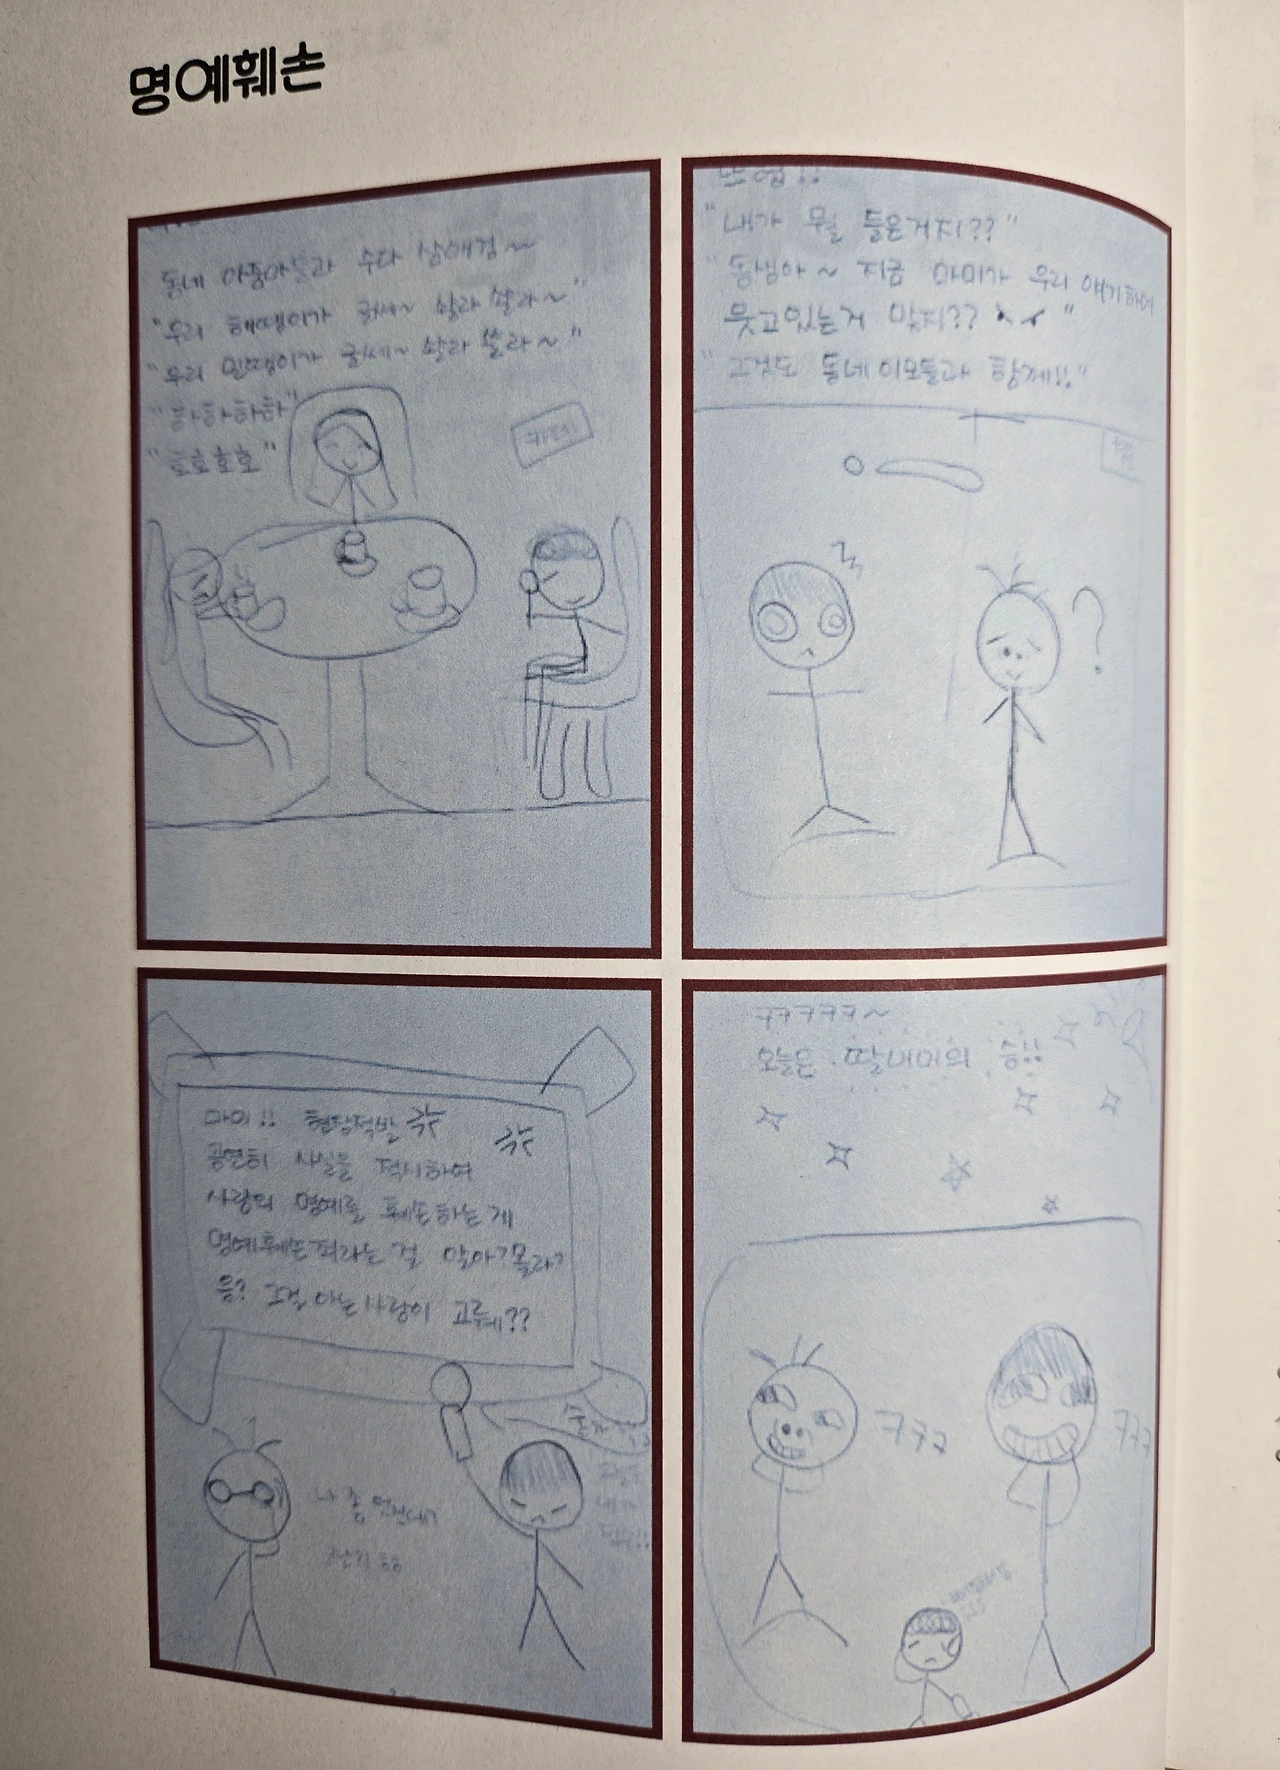 명예훼손
동네 아줌마들과 수다 삼매경~~
"우리 해땡이가 글쎄~ 쏼라 쏼라~"
"우리 민땡이가 글쎄~ 쏼라 쏼라~"
"하하하하"
"호호호호"
카페
"내가 뭘 들은거지??"
"동생아~ 지금 마미가 우리 얘기하며
웃고있는거 맞지??"
"그것도 동네 이모들과 함께!!"
마미!! 현장적발
공연히 사실을 적시하여
사람의 명예를 훼손하는게
명예훼손죄라는 걸 알아?몰라?
응? 그걸 아는 사람이 그래??
나 좀 멋진데?
ㅋㅋㅋㅋㅋ~
오늘은 딸내미의 승!!
ㅋㅋㅋ
ㅋㅋㅋ